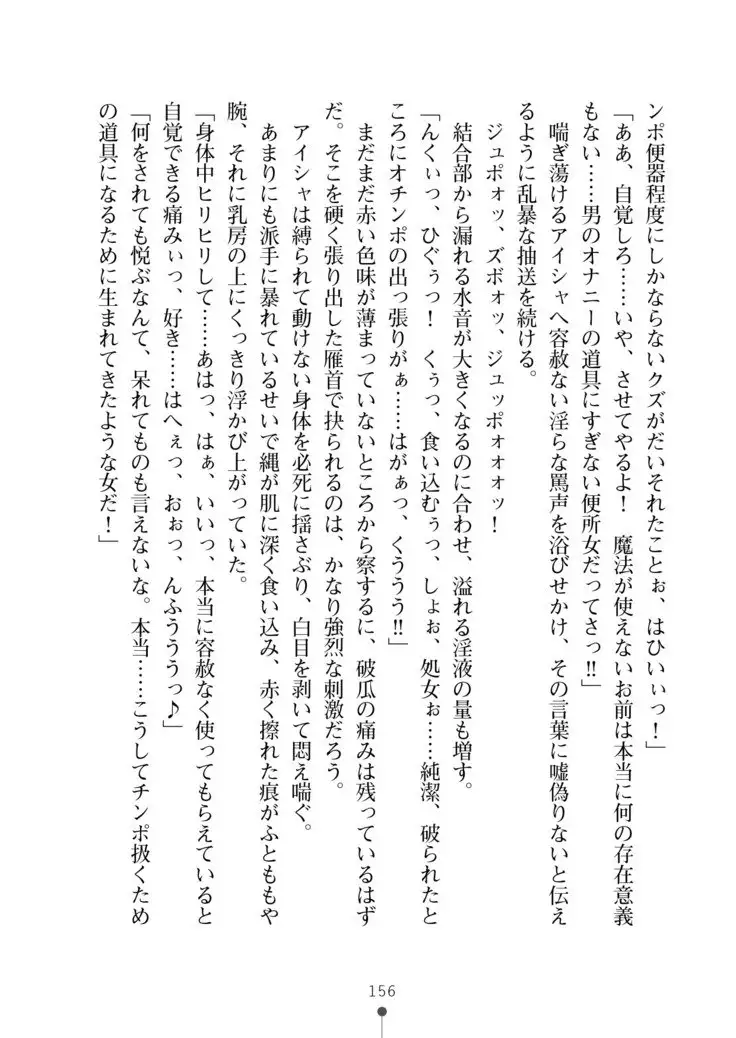 ンポ便器程度にしかならないクズがだいそれたことぉ、はひいぃっ！」
「ああ、自覚しろ……いや、させてやるよ！　魔法が使えないお前は本当に何の存在意義
もない……男のオナニーの道具にすぎない便所女だってさっ‼」
　喘ぎ蕩けるアイシャへ容赦ない淫らな罵声を浴びせかけ、その言葉に嘘偽りないと伝え
るように乱暴な抽送を続ける。
　ジュポォッ、ズボォッ、ジュッポォォォッ！
　結合部から漏れる水音が大きくなるのに合わせ、溢れる淫液の量も増す。
「んくぃっ、ひぐぅっ！　くぅっ、食い込むぅっ、しょぉ、処女ぉ……純潔、破られたと
ころにオチンポの出っ張りがぁ……はがぁっ、くううう‼」
　まだまだ赤い色味が薄まっていないところから察するに、破瓜の痛みは残っているはず
だ。そこを硬く張り出した雁首で抉られるのは、かなり強烈な刺激だろう。
　アイシャは縛られて動けない身体を必死に揺さぶり、白目を剥いて悶え喘ぐ。
　あまりにも派手に暴れているせいで縄が肌に深く食い込み、赤く擦れた痕がふとももや
腕、それに乳房の上にくっきり浮かび上がっていた。
「身体中ヒリヒリして……あはっ、はぁ、いいっ、本当に容赦なく使ってもらえていると
自覚できる痛みぃっ、好き……はへぇっ、おぉっ、んふうううっ♪」
「何をされても悦ぶなんて、呆れてものも言えないな。本当……こうしてチンポ扱くため
の道具になるために生まれてきたような女だ！」
156